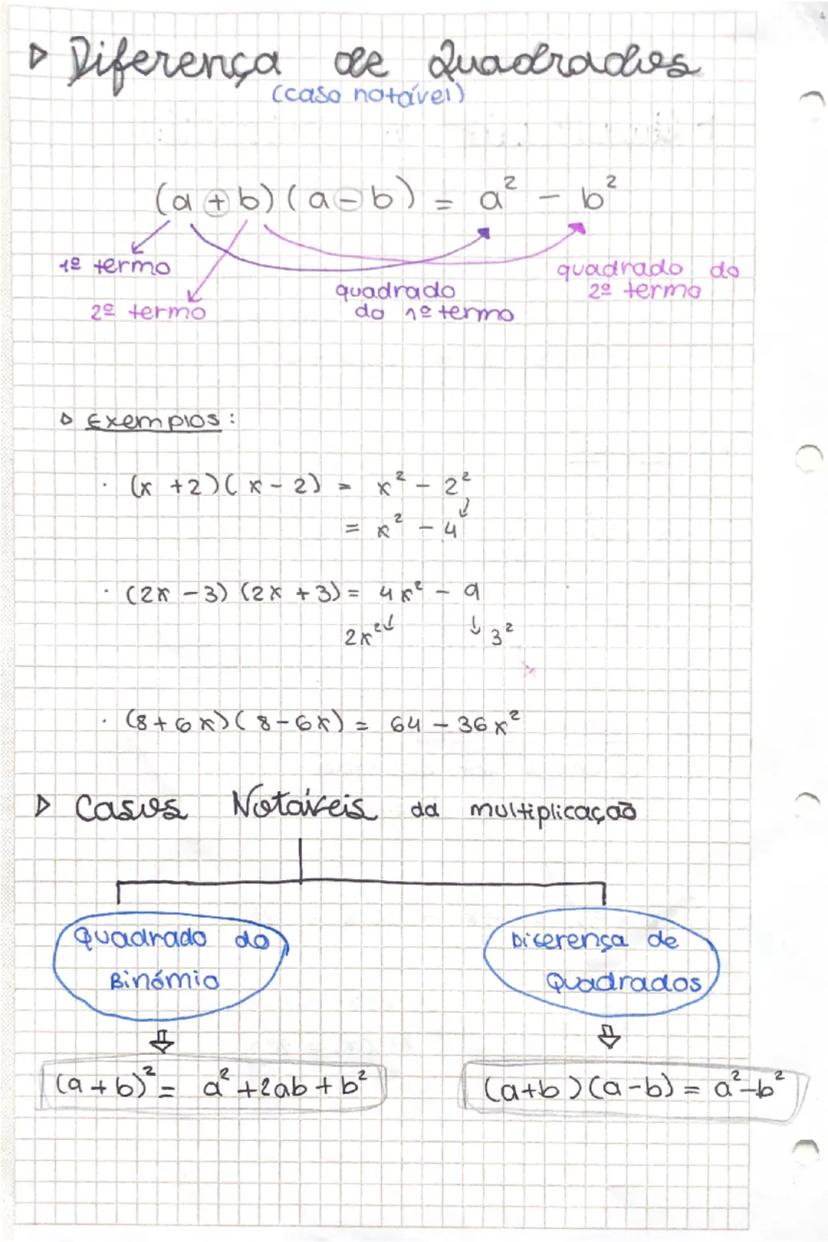 ▷ Diferença de Quadrados
(caso notável)
(a + b) (a - b) = a² - b²
1º termo
2º termo
quadrado
do 1º termo
quadrado do
2º termo
▷ Exemplos:
· (x + 2) (x - 2) = x² - 2²
= x² - 4
· (2x - 3) (2x + 3) = 4x² - 9
2x² 3²
· (8 + 6x) (8 - 6x) = 64 - 36x²
▷ Casos Notáveis da multiplicação
Quadrado do
Binómio
Diferença de
Quadrados
(a + b)² = a² + 2ab + b²
(a + b) (a - b) = a² - b²